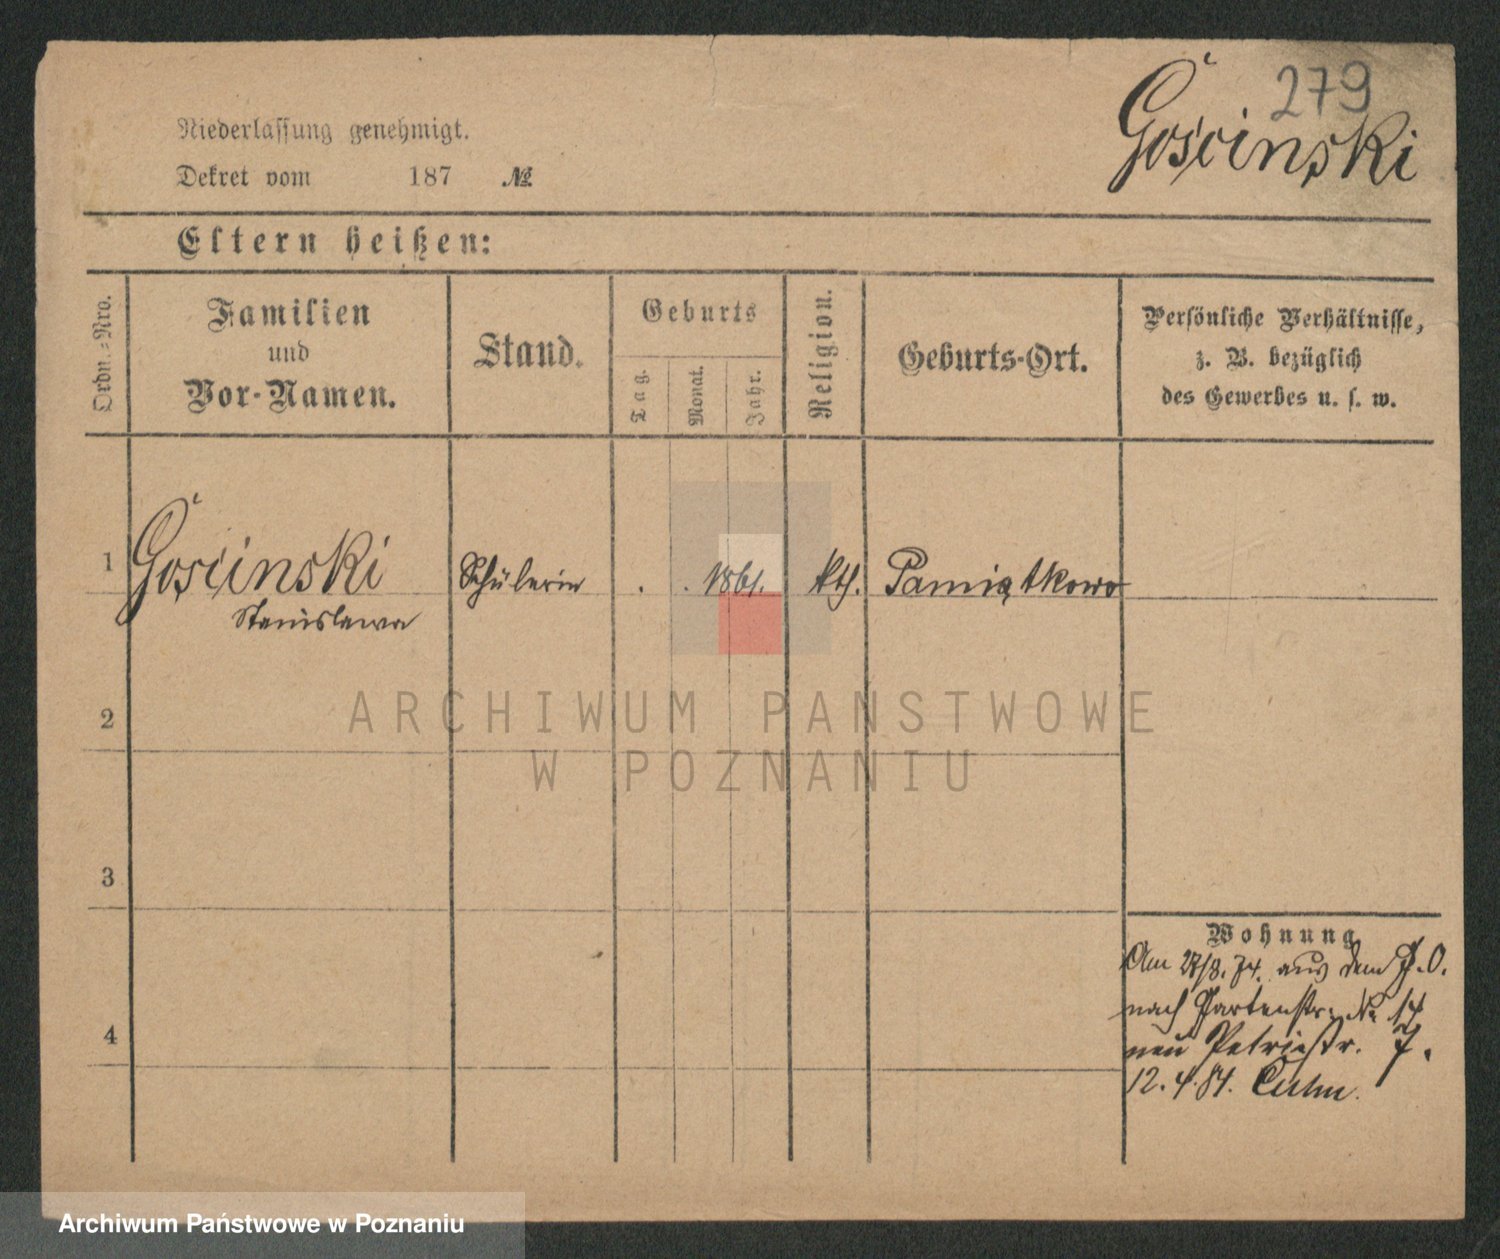 279
Gościnski
Niederlassung genehmigt.
Dekret vom 187 №
Eltern heißen:
Ordn.-Nro.
Familien
und
Vor-Namen.
Stand.
Geburts
Tag.
Monat.
Jahr.
Religion.
Geburts-Ort.
Persönliche Verhältnisse,
z. B. bezüglich
des Gewerbes u. s. w.
1 Gościnski Schülerin . . 1861. kth. Pamiątkowo
Stanislawa
2
3
4
Wohnung
Am 27/8. 74. aus dem J. O.
nach Gartenstr. № 14
neu Petristr. 7.
12. 4. 84. Culm.
ARCHIWUM PAŃSTWOWE
W POZNANIU
Archiwum Państwowe w Poznaniu